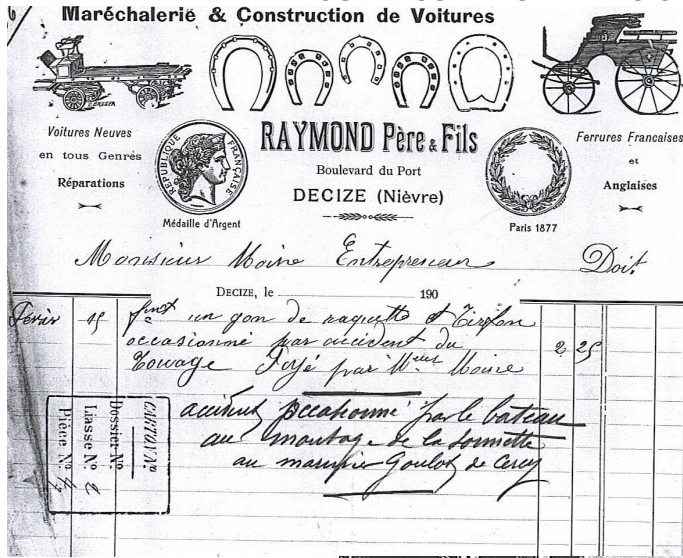 Maréchalerie & Construction de Voitures
Voitures Neuves
en tous Genres
Réparations
RÉPUBLIQUE FRANÇAISE
Médaille d'Argent
RAYMOND Père & Fils
Boulevard du Port
DECIZE (Nièvre)
Paris 1877
Ferrures Francaises
et
Anglaises
Monsieur Moine Entrepreneur Doit
DECIZE, le 190
15 un gon de raquette et
occasionné par accident du 2 25
par Moine
accident occasionné par le bateau
au montage de la sonnette
au marinier Goulot de Cercy
CARTON No
Dossier No
Liasse No 2
Pièce No